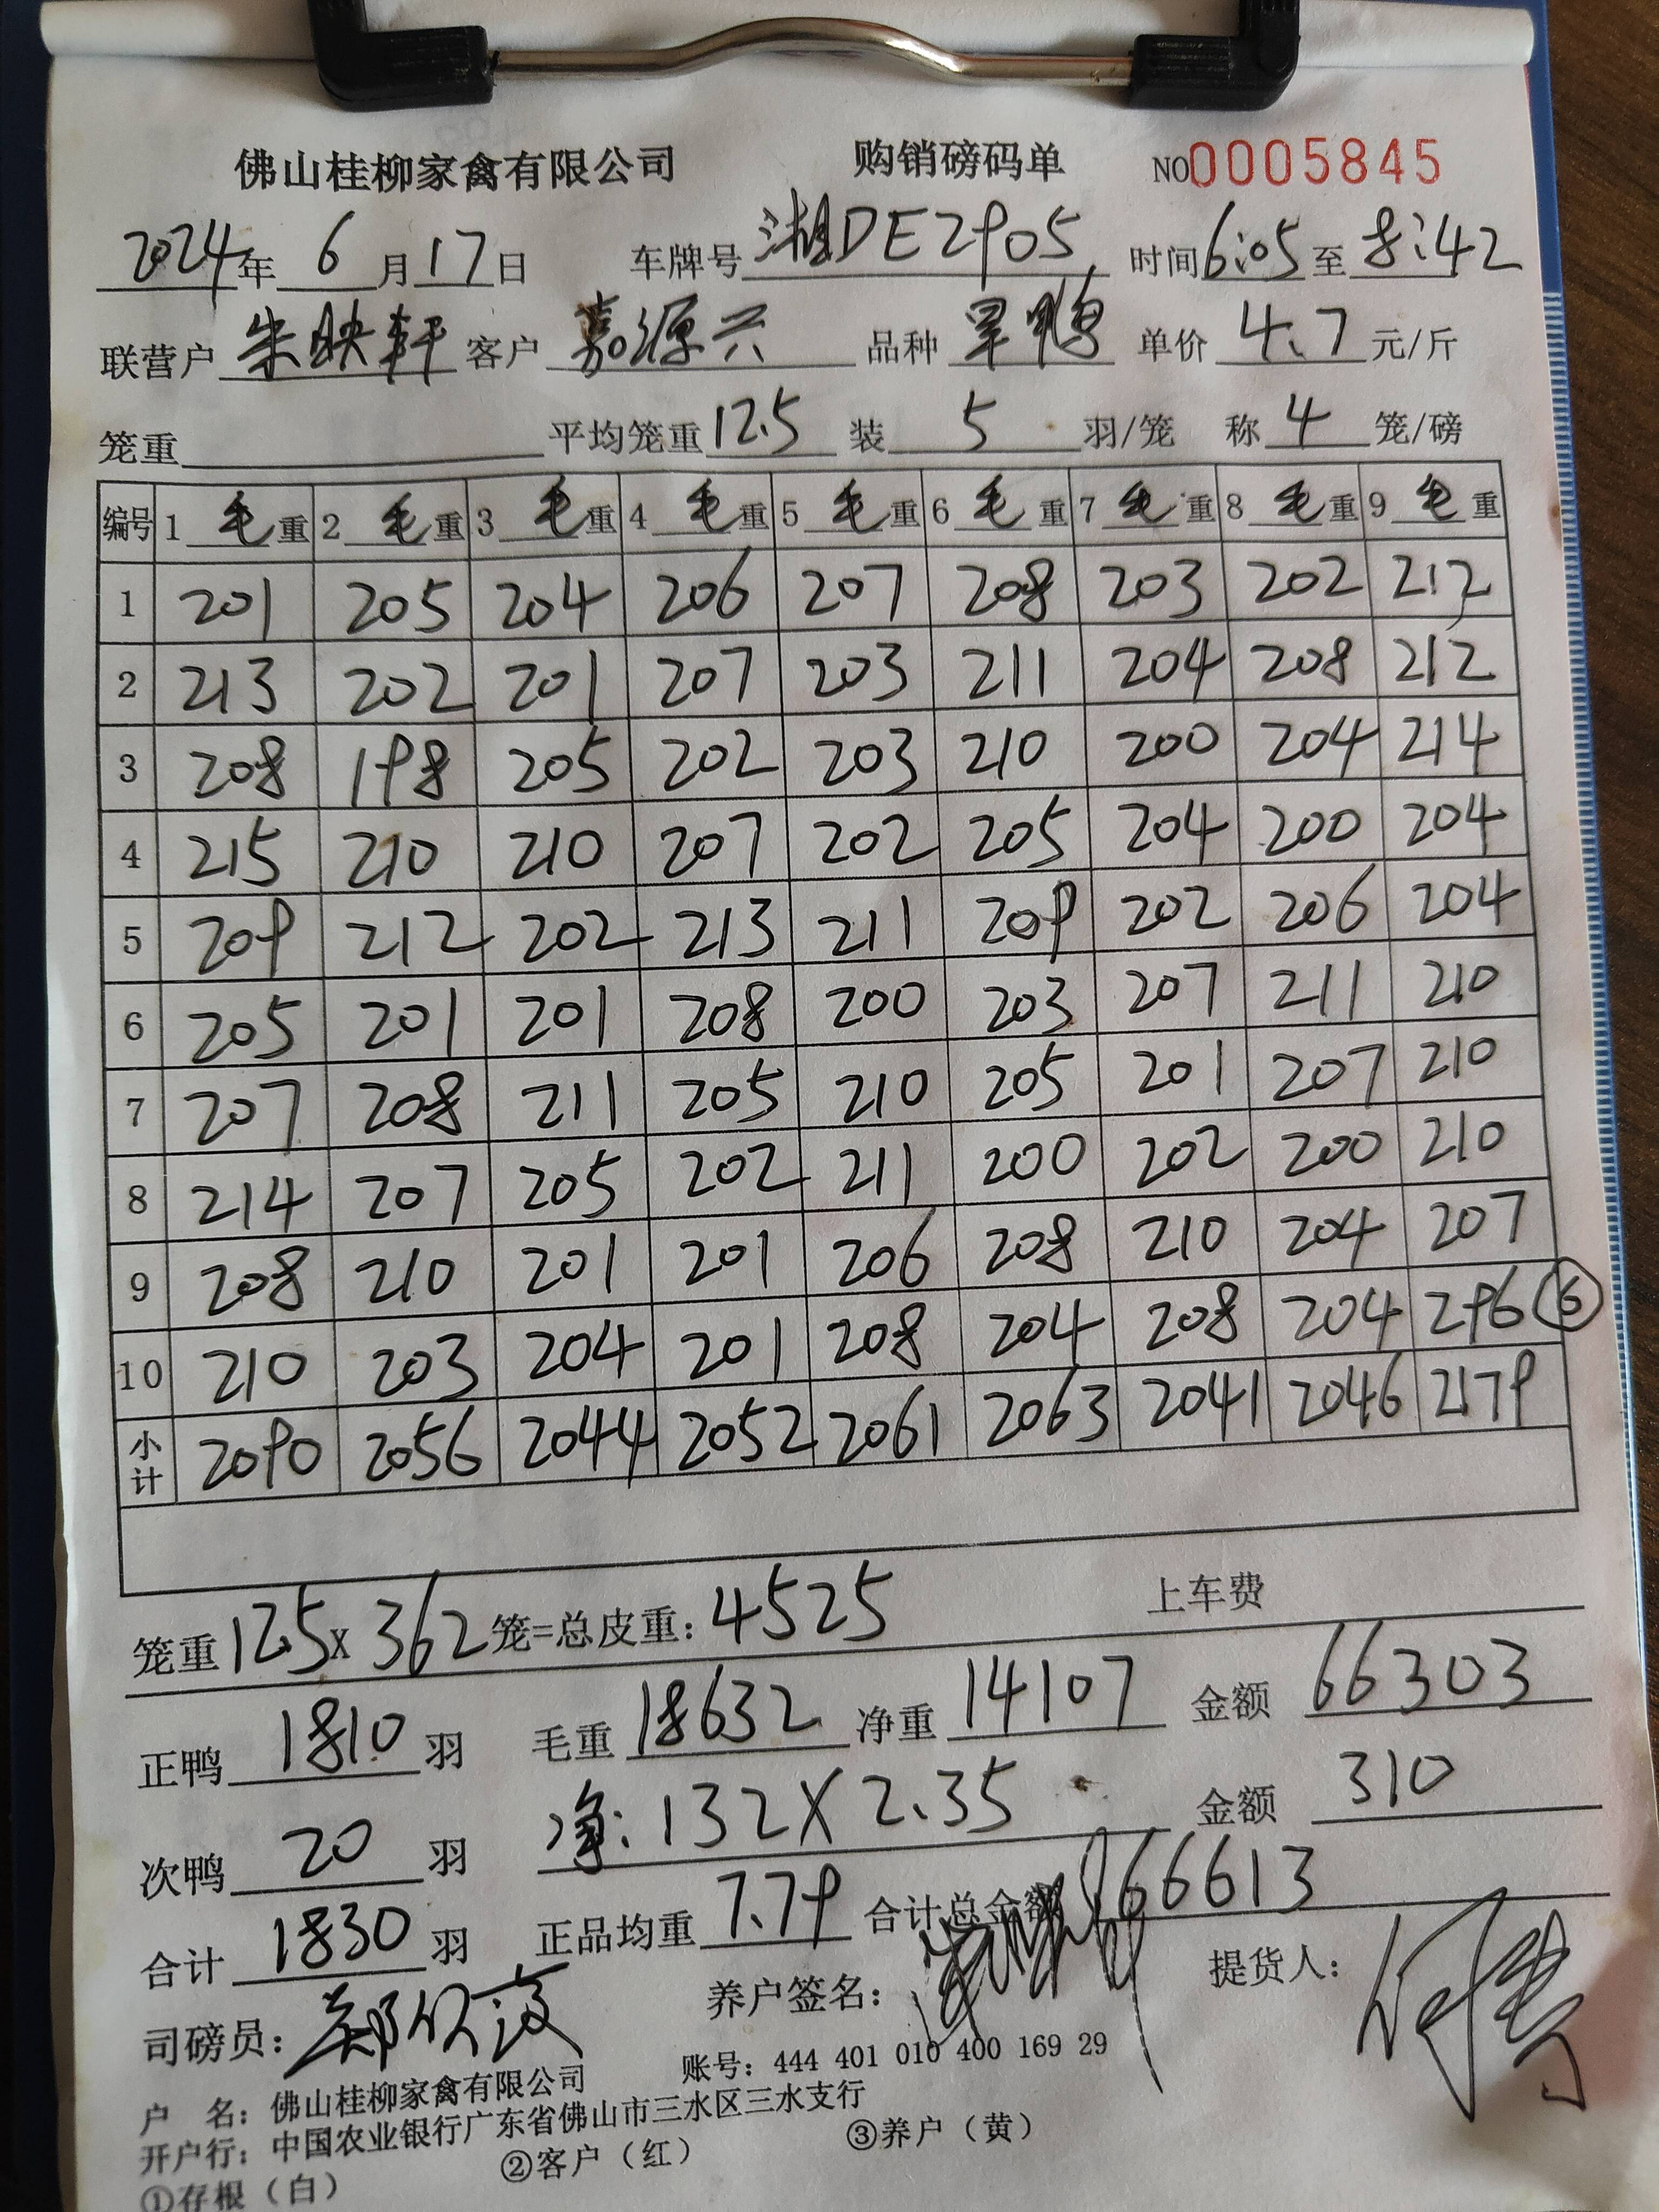 佛山桂柳家禽有限公司 购销磅码单 NO0005845
2024年 6 月17日 车牌号 湘DE2905 时间6:05至8:42
联营户 朱映轩 客户 嘉源兴 品种 旱鸭 单价 4.7 元/斤
笼重 平均笼重12.5 装 5 羽/笼 称 4 笼/磅
编号 1 毛重 2 毛重 3 毛重 4 毛重 5 毛重 6 毛重 7 毛重 8 毛重 9 毛重
1 201 205 204 206 207 208 203 202 212
2 213 202 201 207 203 211 204 208 212
3 208 198 205 202 203 210 200 204 214
4 215 210 210 207 202 205 204 200 204
5 209 212 202 213 211 209 202 206 204
6 205 201 201 208 200 203 207 211 210
7 207 208 211 205 210 205 201 207 210
8 214 207 205 202 211 200 202 200 210
9 208 210 201 201 206 208 210 204 207
10 210 203 204 201 208 204 208 204 296 ⑥
小计 2090 2056 2044 2052 2061 2063 2041 2046 2179
笼重12.5x 362笼=总皮重：4525 上车费
正鸭 1810 羽 毛重 18632 净重 14107 金额 66303
次鸭 20 羽 净：132X2.35 金额 310
合计 1830 羽 正品均重 7.79 合计总金额 66613
司磅员： 养户签名： 提货人：
户 名：佛山桂柳家禽有限公司 账号：444 401 010 400 169 29
开户行：中国农业银行广东省佛山市三水区三水支行
①存根（白） ②客户（红） ③养户（黄）